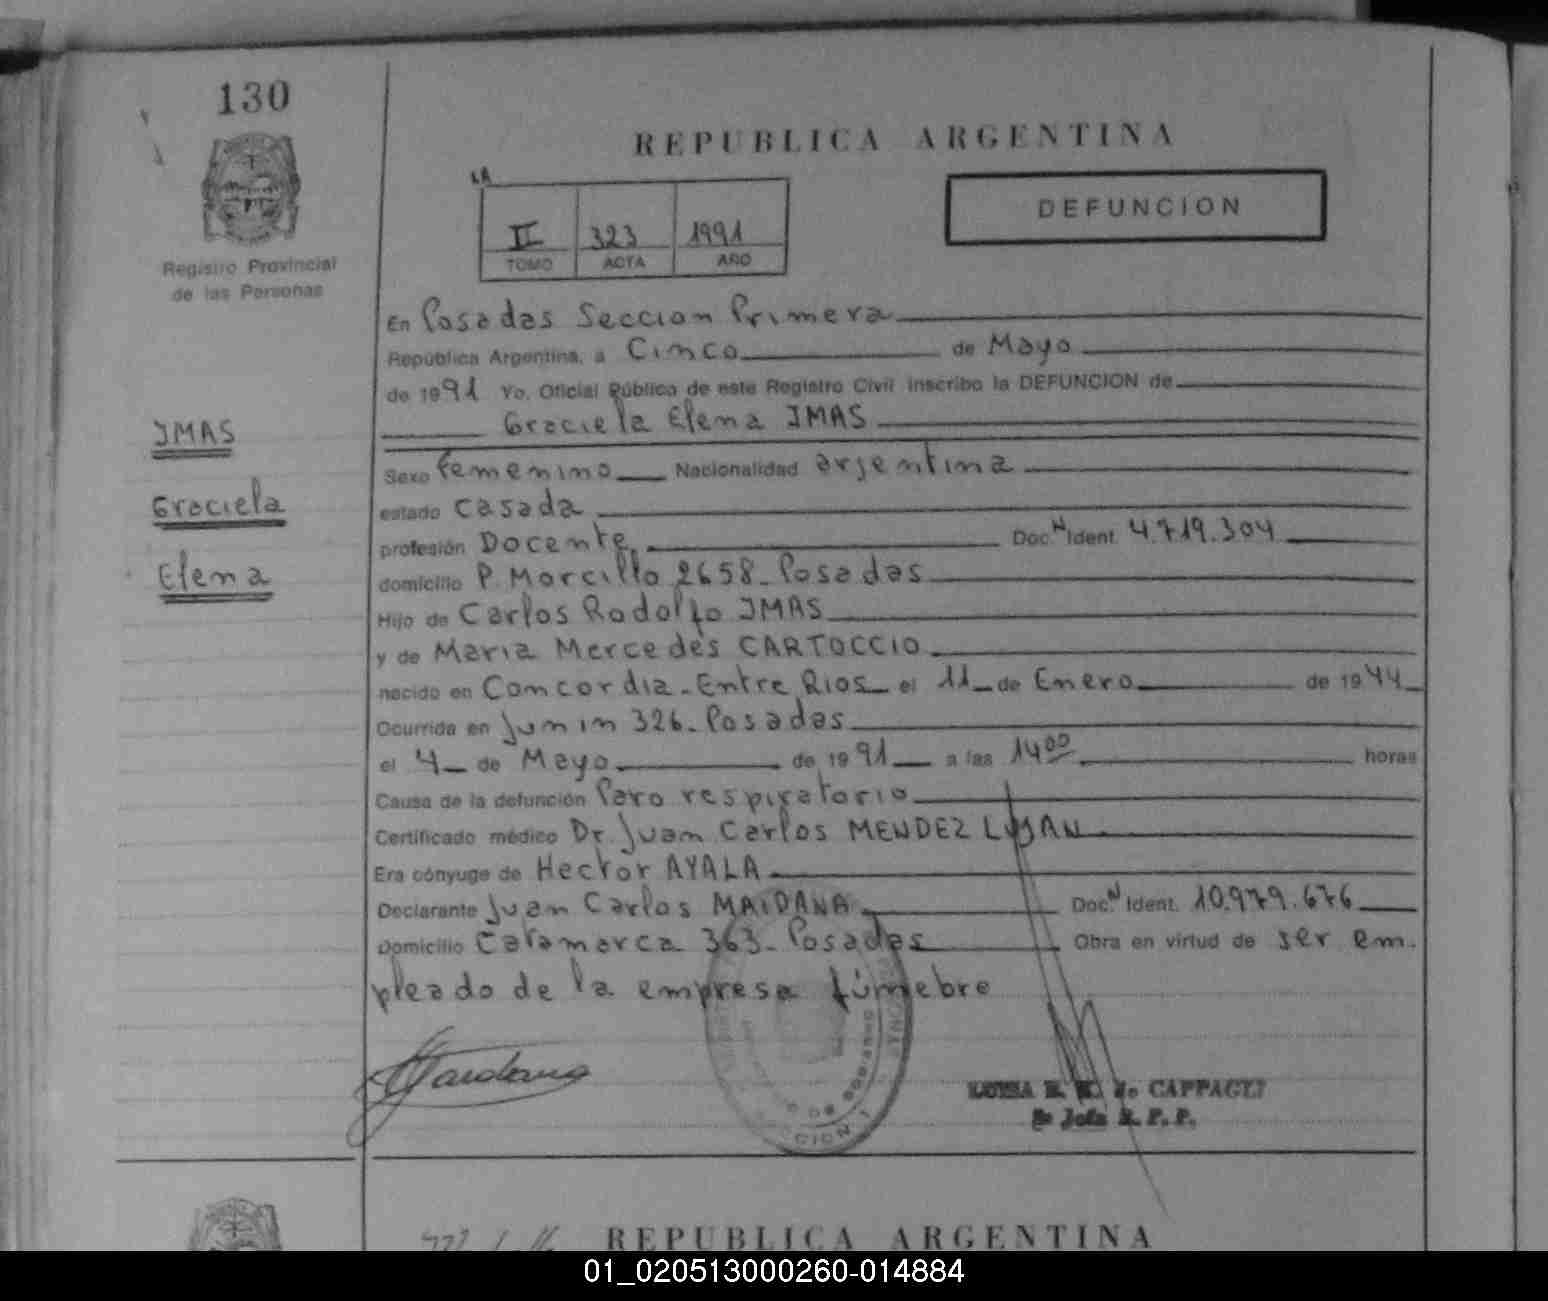 130
REPUBLICA ARGENTINA
LA
II 323 1991
TOMO ACTA AÑO
DEFUNCION
Registro Provincial
de las Personas
En Posadas Seccion Primera
República Argentina, a Cinco de Mayo
de 1991 Yo, Oficial Público de este Registro Civil inscribo la DEFUNCION de
Graciela Elena IMAS
IMAS
Graciela
Elena
Sexo femenino Nacionalidad argentina
estado casada
profesión Docente Doc.N Ident. 4.719.304
domicilio P. Morcillo 2658- Posadas
Hijo de Carlos Rodolfo IMAS
y de Maria Mercedes CARTOCCIO
nacido en Concordia-Entre Rios el 11 de Enero de 1944
Ocurrida en Junin 326- Posadas
el 4 de Mayo de 1991 a las 14 00 horas
Causa de la defunción Paro respiratorio
Certificado médico Dr. Juan Carlos MENDEZ LUJAN
Era cónyuge de Hector AYALA
Declarante Juan Carlos MAIDANA Doc.N Ident. 10.979.676
Domicilio Catamarca 363- Posadas Obra en virtud de ser em-
pleado de la empresa fúnebre
LUISA de CAPPAGLI
R. P. P.
REPUBLICA ARGENTINA
01_020513000260-014884